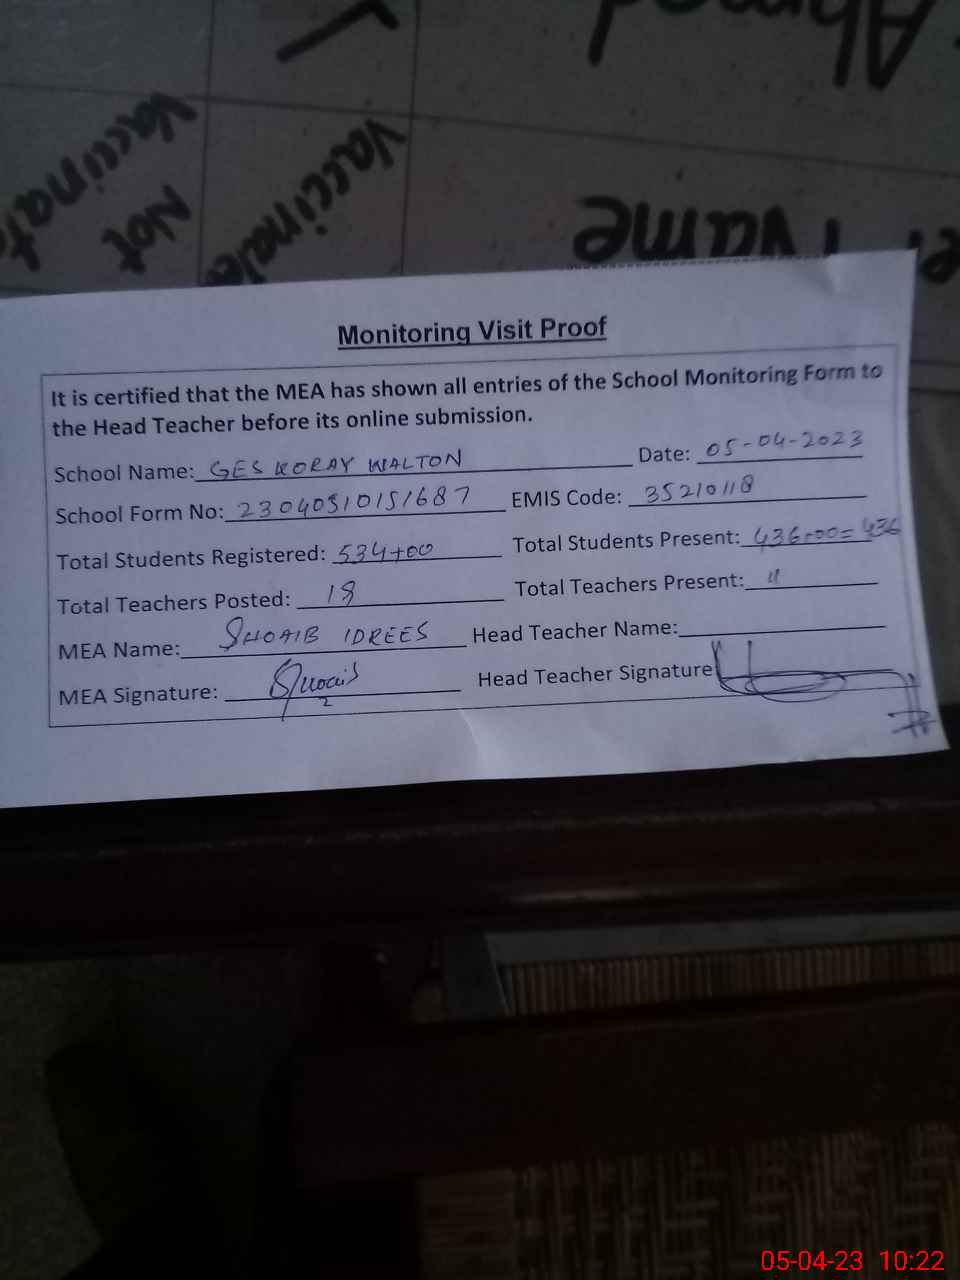 Abhmed
Vaccinate
Not
Vaccinated
Name
Monitoring Visit Proof
It is certified that the MEA has shown all entries of the School Monitoring Form to
the Head Teacher before its online submission.
School Name: GES KORAY WALTON Date: 05-04-2023
School Form No: 23040510151687 EMIS Code: 35210118
Total Students Registered: 534+00 Total Students Present: 436+00=436
Total Teachers Posted: 18 Total Teachers Present: 11
MEA Name: SHOAIB IDREES Head Teacher Name:
MEA Signature: Shoaib Head Teacher Signature
05-04-23 10:22